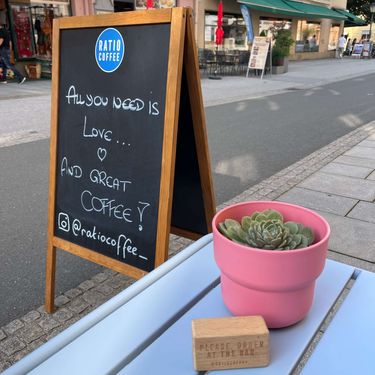 RATIO
COFFEE
ALL YOU NEED IS
LOVE...
AND GREAT
COFFEE!
@ratiocoffee_
PLEASE, ORDER
AT THE BAR